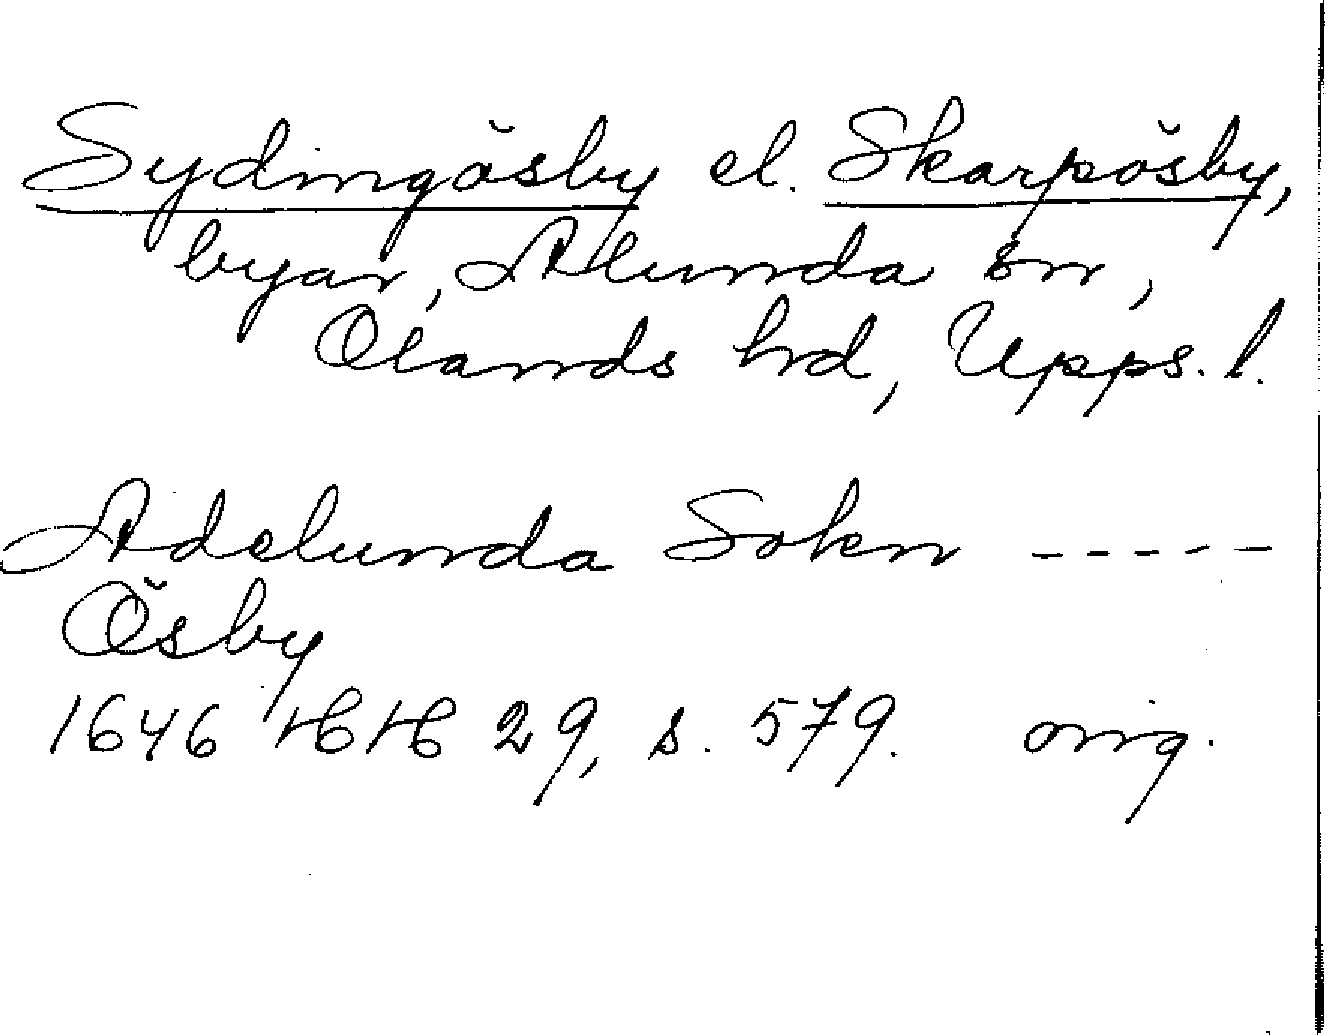 Sydingösby el. Skarpösby,
byar, Alunda sn,
Olands hd, Upps. l.
Adelunda Sokn -----
Ösby
1646 HH 29, s. 579. orig.